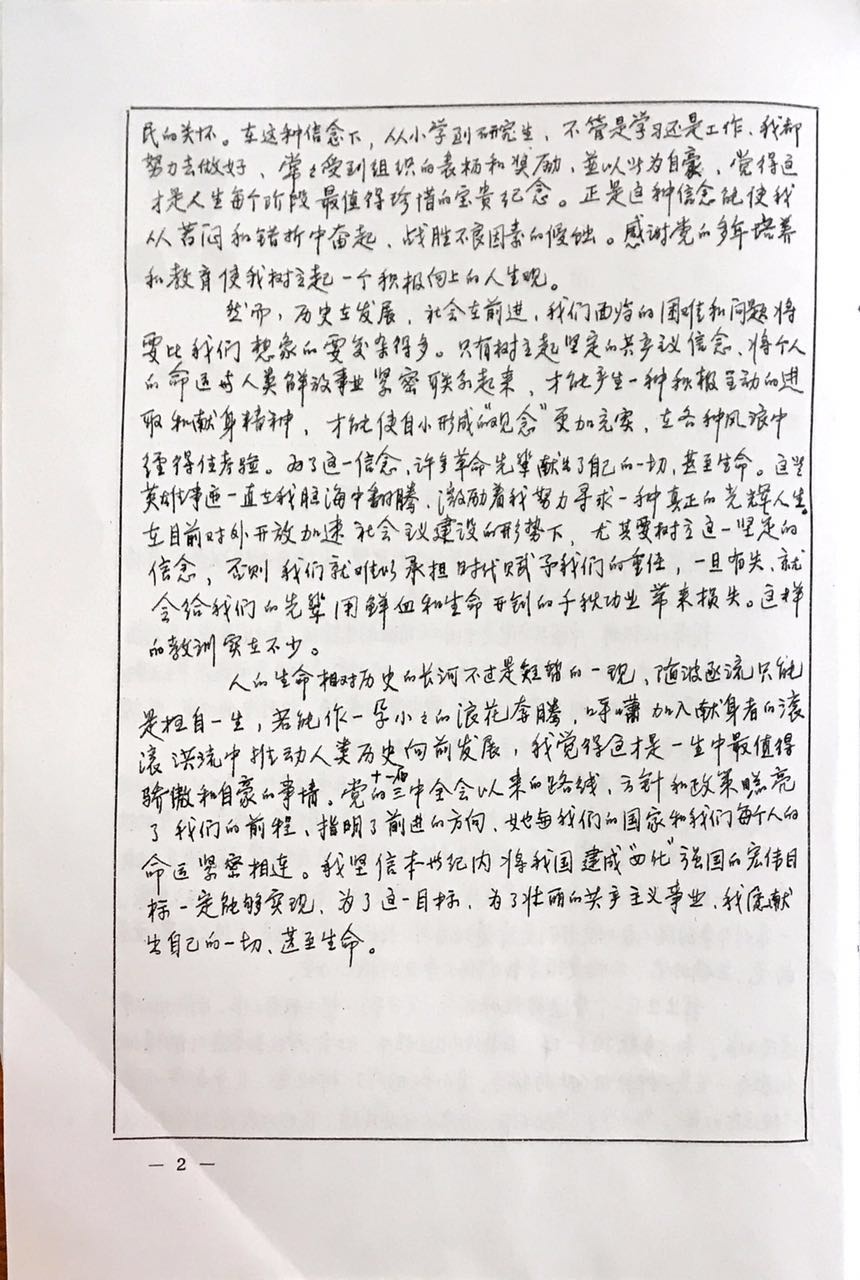 民的关怀。在这种信念下，从小学到研究生，不管是学习还是工作，我都
努力去做好、常々受到组织的表杨和奖励，並以此为自豪，觉得这
才是人生每个阶段最值得珍惜的宝贵纪念。正是这种信念能使我
从苦闷和错折中奋起、战胜不良因素的侵蚀。感谢党的多年培养
和教育使我树立起一个积极向上的人生观。
然而，历史在发展，社会在前进，我们面临的困难和问题将
要比我们想象的要复杂得多。只有树立起坚定的共产主义信念、将个人
的命运与人类解放事业紧密联系起来，才能产生一种积极主动的进
取和献身精神，才能使自小形成的"观念"更加充实，在各种风浪中
经得住考验。为了这一信念、许多革命先辈献出了自己的一切，甚至生命。这些
英雄事迹一直在我脑海中翻腾、激励着我努力寻求一种真正的光辉人生。
在目前对外开放加速社会主义建设的形势下，尤其要树立这一坚定的
信念，否则我们就难以承担时代赋予我们的重任，一旦有失、就
会给我们的先辈用鲜血和生命开创的千秋功业带来损失。这样
的教训实在不少。
人的生命相对历史的长河不过是短暂的一现、随波逐流只能
是枉自一生，若能作一朵小々的浪花奔腾，呼啸加入献身者的滚
滚洪流中推动人类历史向前发展，我觉得这才是一生中最值得
骄傲和自豪的事情。党的十一届三中全会以来的路线、方针和政策照亮
了我们的前程、指明了前进的方向、她与我们的国家和我们每个人的
命运紧密相连。我坚信本世纪内将我国建成"四化"强国的宏伟目
标一定能够实现、为了这一目标、为了壮丽的共产主义事业、我愿献
出自己的一切、甚至生命。
— 2 —